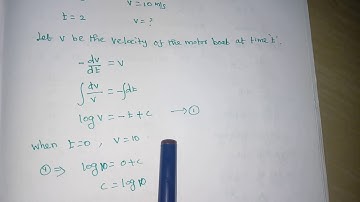 v = 10 m/s
t = 2 v = ?
Let v be the velocity of the motor boat at time 't'.
-dv/dt = v
∫ dv/v = -∫dt
log v = -t + c → ①
when t=0, v=10
① ⇒ log 10 = 0 + c
c = log 10